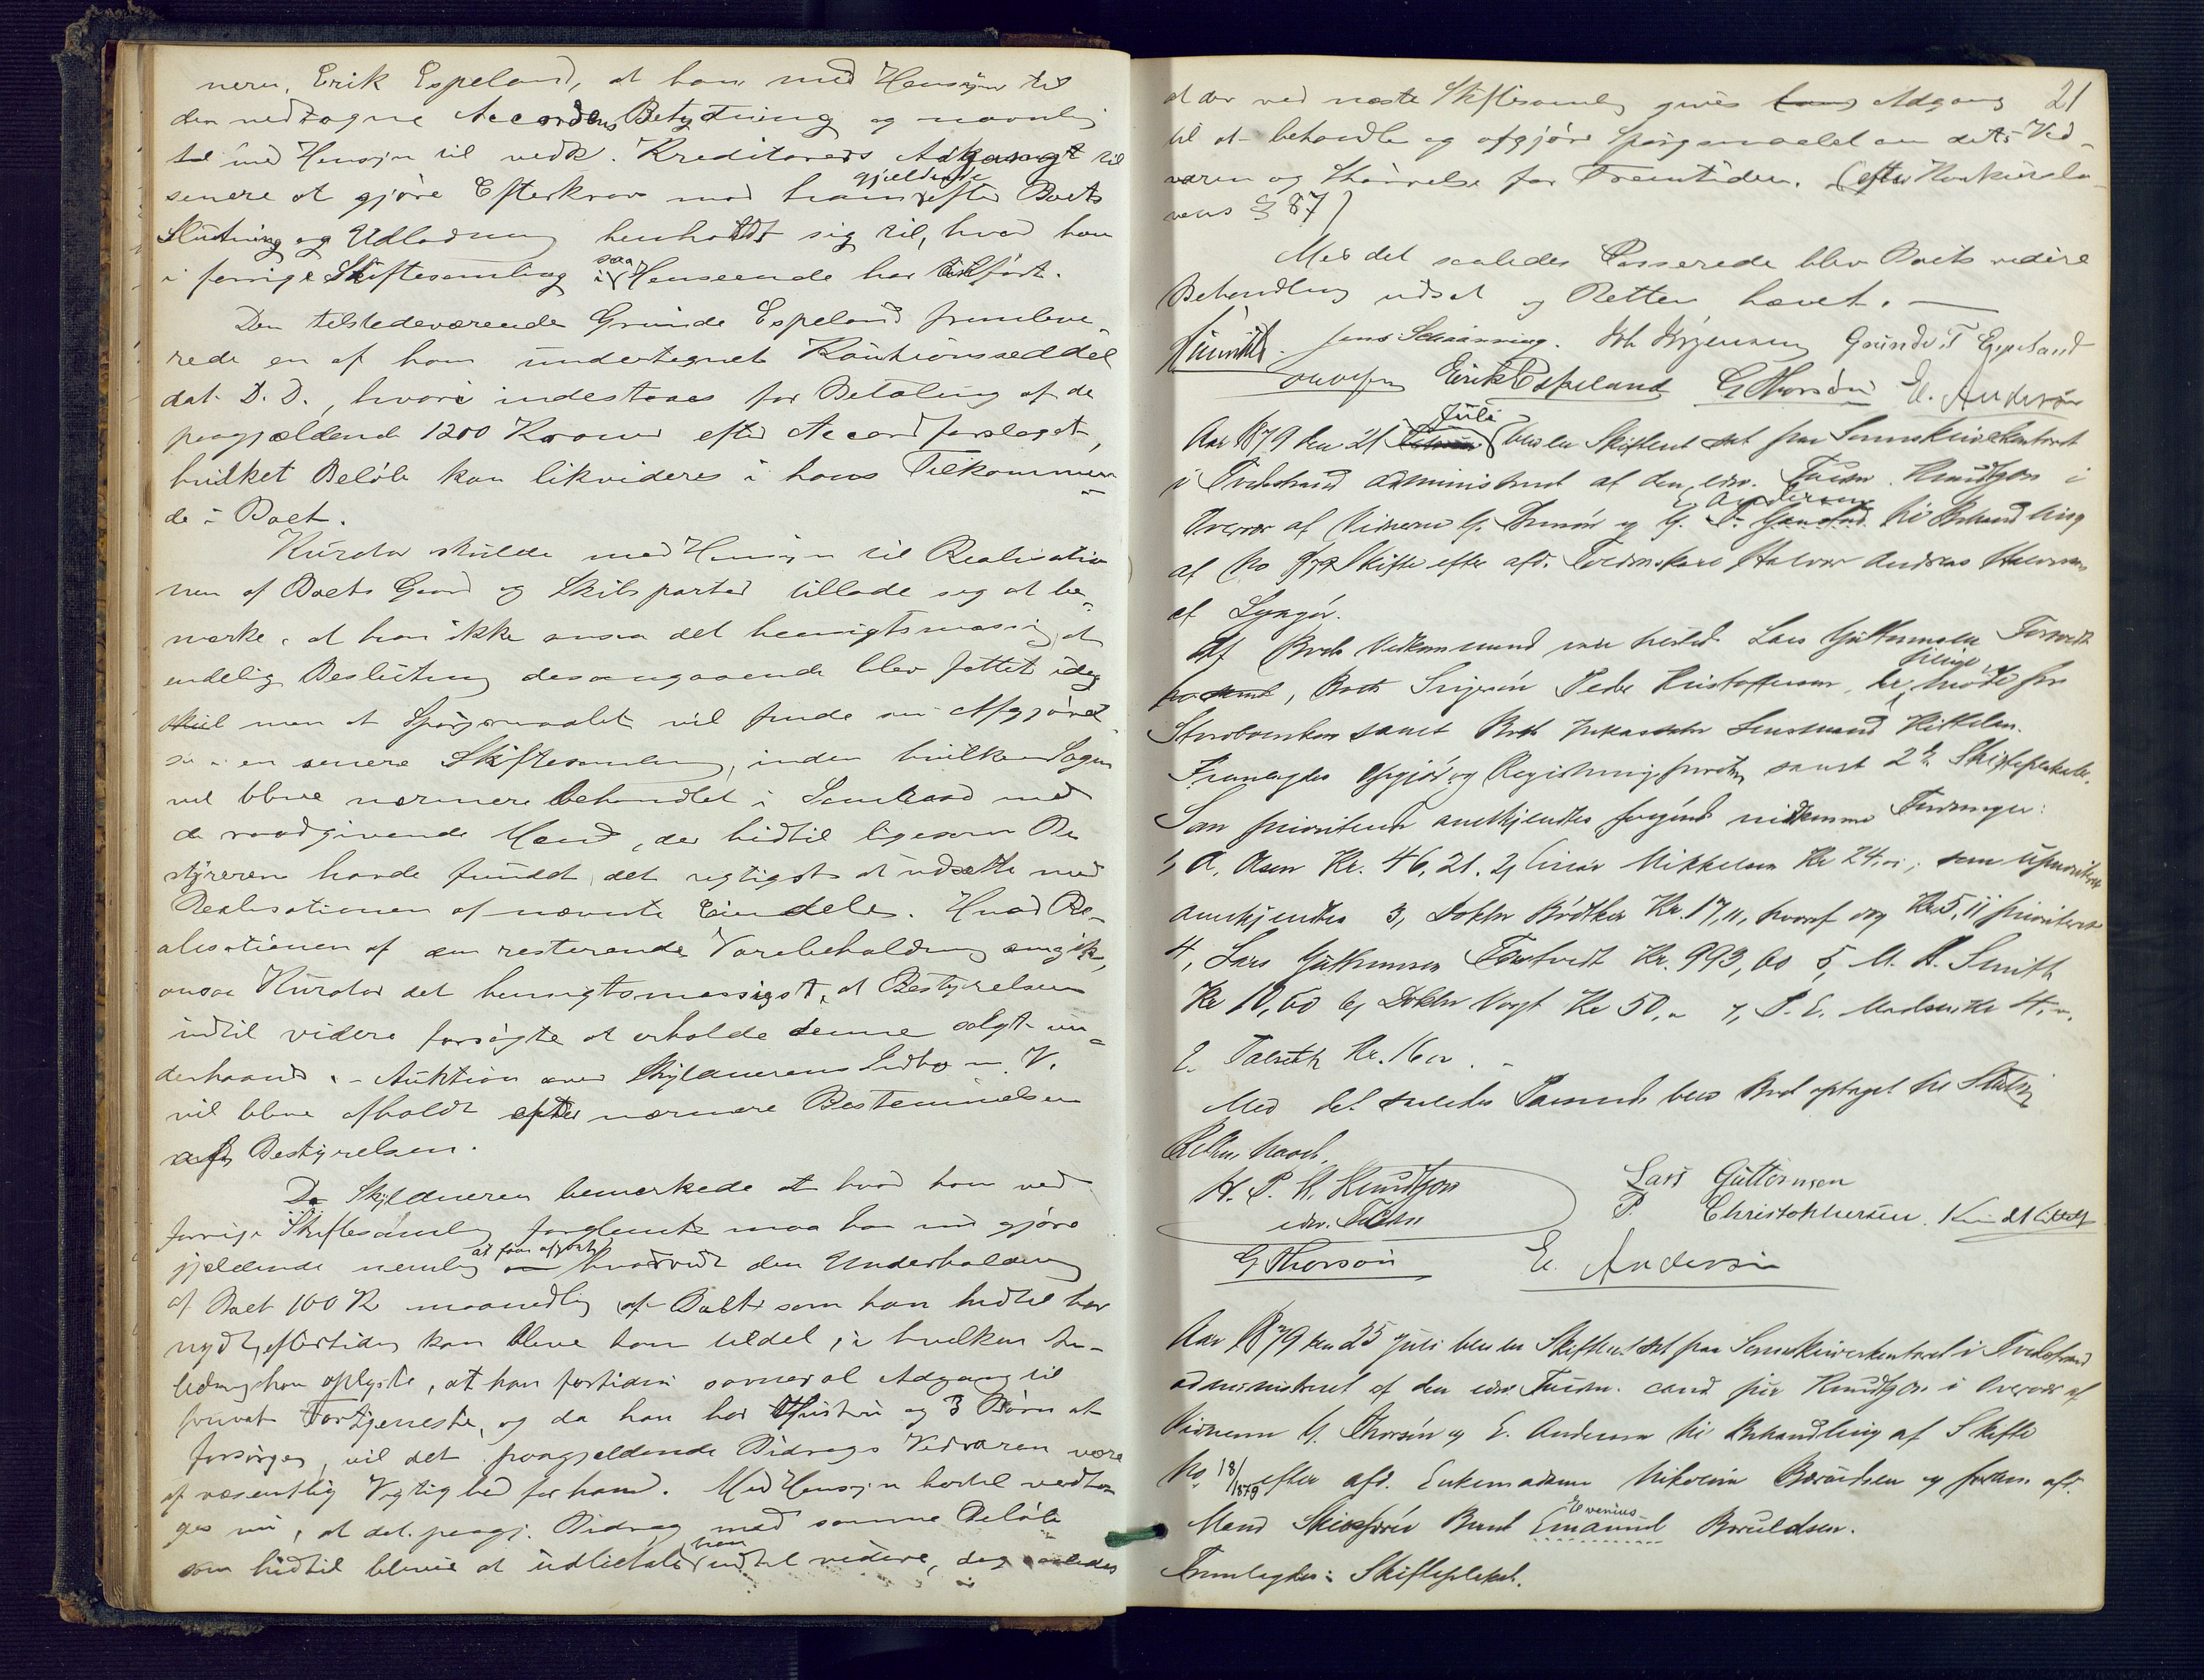 neren, Erik Espeland, at han med Hensyn til
den vedtagne Accordens Betydning og navnlig
tal med Hensyn til vedk. Kreditorers Adgang til
gjeldende
senere at gjøre Efterkrav mod ham efter Boets
Slutning og Udlodning henholdt sig til, hvad han
i forrige Skiftesamling i saa Henseende har tilført.
Den tilstedeværende Grunde Espeland fremleve-
rede en af ham undertegnet Kautionsseddel
dat. D. D., hvori indestaaes for Betaling af de
paagjældende 1200 Kroner efter Accordforslaget,
hvilket Beløb kan likvideres i hans Tilkommen-
de i Boet.
Kurator skulde med Hensyn til Realisatio
nen af Boets Gaard og Skibsparter tillade sig at be-
mærke, at han ikke ansaa det hensigtsmæssig, at
endelig Beslutning desangaaende blev fattet idag
men at Spørgsmaalet vil finde sin Afgjørel
se i en senere Skiftesamling, inden hvilken Sagen
vil blive nærmere behandlet i Samraad med
de raadgivende Mænd, der hidtil ligesom Be
styreren havde fundet det rigtigst at udsætte med
Realisationen af nævnte Eiendele. Hvad Re-
alisationen af den resterende Varebeholdning angik,
ansaa Kurator det hensigtsmæssigst, at Bestyrelsen
indtil videre forsøgte at erholde denne solgt un-
derhaanden. - Auktion over Skyldnerens Indbo m. V.
vil blive afholdt efter nærmere Bestemmelse
af Bestyrelsen.
Da Skyldneren bemærkede at hvad han ved
forrige Skiftesamling forglemte maa han nu gjøre
gjældende nemlig at faa afgjort hvorvidt den Underholdning
af Boet 100 K maanedlig af Boet som han hidtil har
nydt, eftertiden kan blive ham tildel, i hvilken An-
ledning han oplyste, at han fortiden savner al Adgang til
privat Fortjeneste, og da han har Hustru og 3 Børn at
forsørge, vil det paagjeldende Bidrags Vedvaren være
af væsentlig Vigtighed for ham. Med Hensyn hertil vedto-
ges nu, at det paagj. Bidrag med samme Beløb
som hidtil bliver at udbetale ham indtil videre, dog saaledes
21
at der ved næste Skiftesamling gives Adgang
til at behandle og afgjøre Spørgsmaalet om dets Ved-
varen og Størrelse for Fremtiden. (efter Konkurslo-
vens § 87)
Med det saaledes Passerede blev Boets videre
Behandling udsat og Retten hævet. —
Jens Schaanning. Joh Jørgensen Grunde T Espeland
Erik Espeland G Thorsøn E. Andersøn
Juli
Aar 1879 den 21 blev en Skifteret sat paa Sorenskriverkontoret
i Tvedestrand administreret af den edsv. Fuldm. Knudtzon i
E Andersen
Overvær af Vidnerne G. Thorsøn og til Behandling
af No Skifte efter afd. Tredemskare Halvor Andreas Halvorsen
af Lyngør.
Af Boets Vedkommende var tilstede Lars Guttormsen Tostvedt
, Boets Svigersøn Peder Kristoffersen, der tillige møde for
Storebroderen samt Boets Inkassator Lensmand Kittelsen.
Fremlagdes Opgjør og Registreringsforretn samt 2de Skifteplakater.
Som prioriteret anerkjendtes følgende vedkomne Fordringer:
1, A. Olsen Kr. 46,21. 2, Einar Mikkelsen Kr 24,00; som uprioriteret
anerkjendtes 3, Doktor Brødtker Kr. 17,11, hvoraf dog Kr. 5,11 prioriteret
4, Lars Guttormsen Tostvedt Kr. 993,60 5, M. A. Smith
Kr 10,60 6, Doktor Vogt Kr 50,- 7, P. E. Madsen Kr 4,-.
E. Talseth Kr. 16
Med det saaledes Passerede blev Boet optaget til Slutn
Retten hævet.
H. P. K. Knudtzon
edsv. Fuldm
Lars Guttormsen
P. Christophersen. K
G Thorsøn E. Andersøn
Aar 1879 den 25 Juli blev en Skifteret sat paa Sorenskriverkontoret i Tvedestrand
administreret af den edsv Fuldm. cand jur Knudtzon i Overvær af
Vidnerne G. Thorsøn og E. Andersøn til Behandling af Skifte
No 18/1879 efter afd. Enkemadam Nikoline Boruldsen og forhen afd.
Evenius
Mand Skibsfører Bernt Emanuel Boruldsen.
Fremlagdes: Skifteplakat.